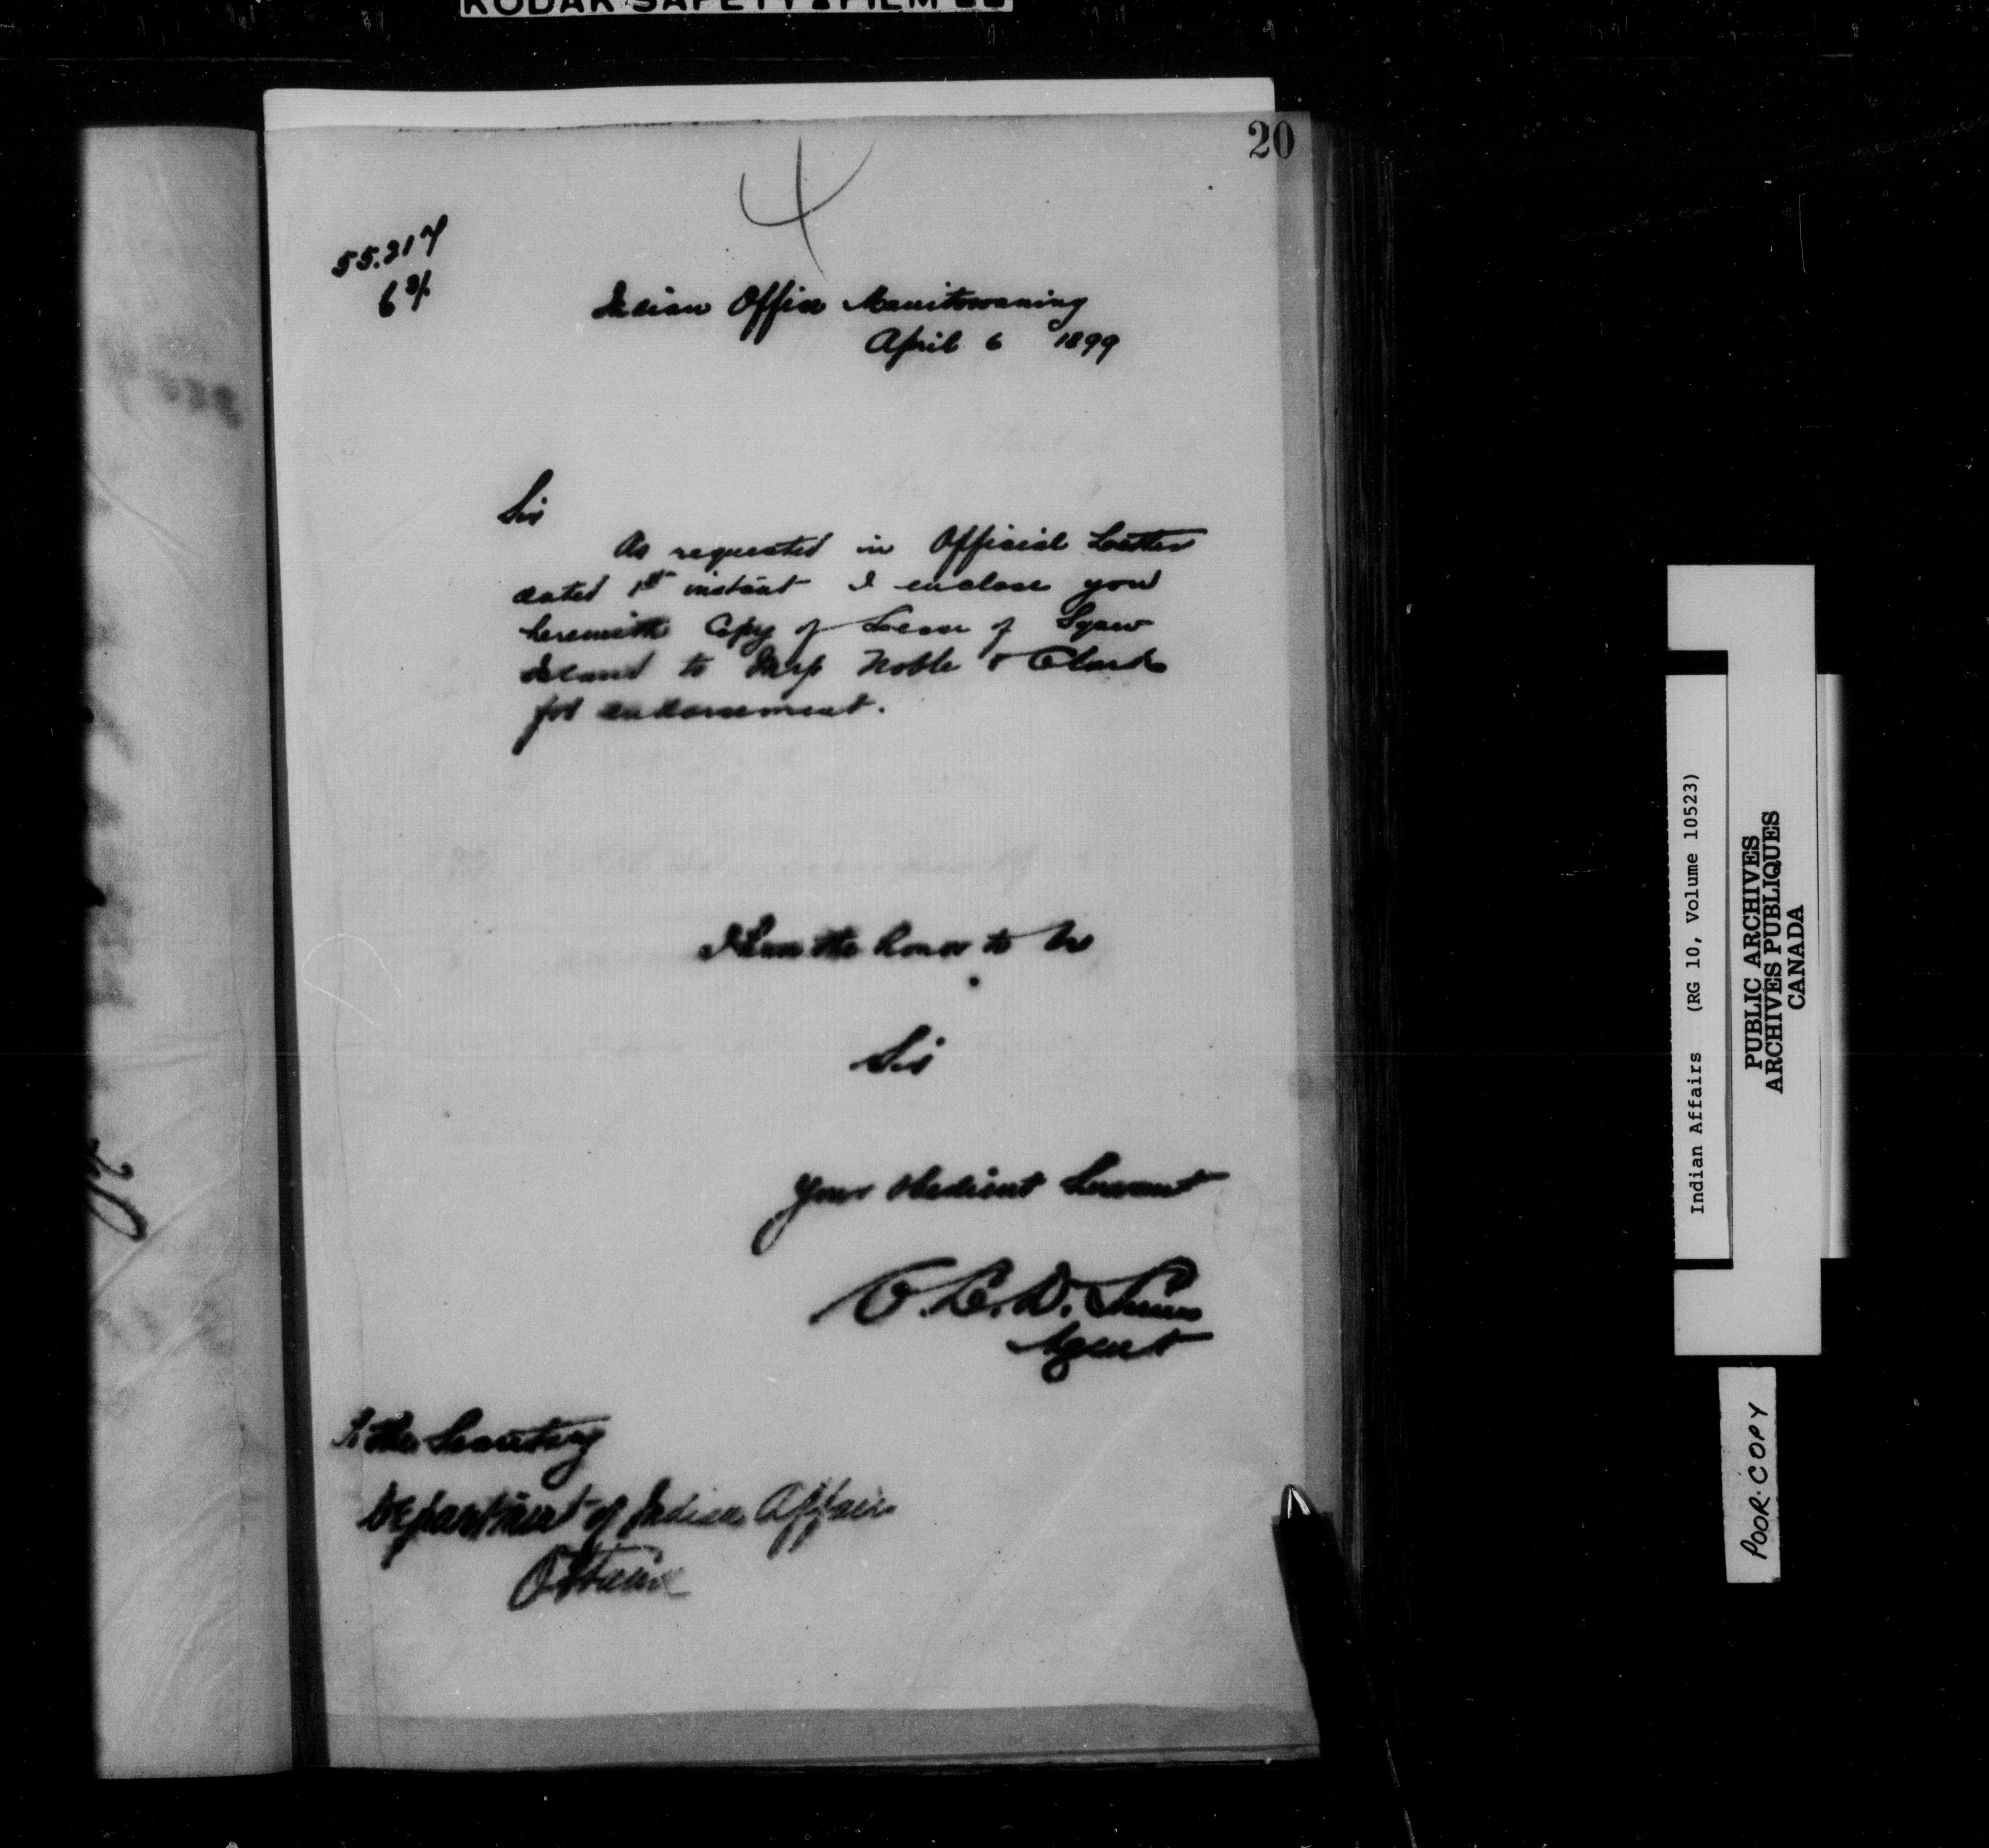 KODAK SAFETY FILM
20
4
55.217
Indian Office Manitowaning
April 6 1899
Sir
As requested in Official Letter
dated 1st instant I enclose you
herewith Copy of Lease of
Island to Noble & Clark
for endorsement.
I have the honor to be
Sir
Your obedient Servant
C.L.D. Sims
Agent
To the Secretary
Department of Indian Affairs
Ottawa
Indian Affairs (RG 10, Volume 10523)
PUBLIC ARCHIVES
ARCHIVES PUBLIQUES
CANADA
POOR COPY